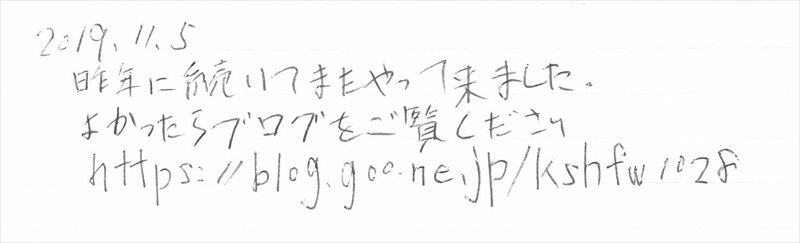 2019.11.5
昨年に続いてまたやって来ました。
よかったらブログをご覧ください
https://blog.goo.ne.jp/kshfw1028